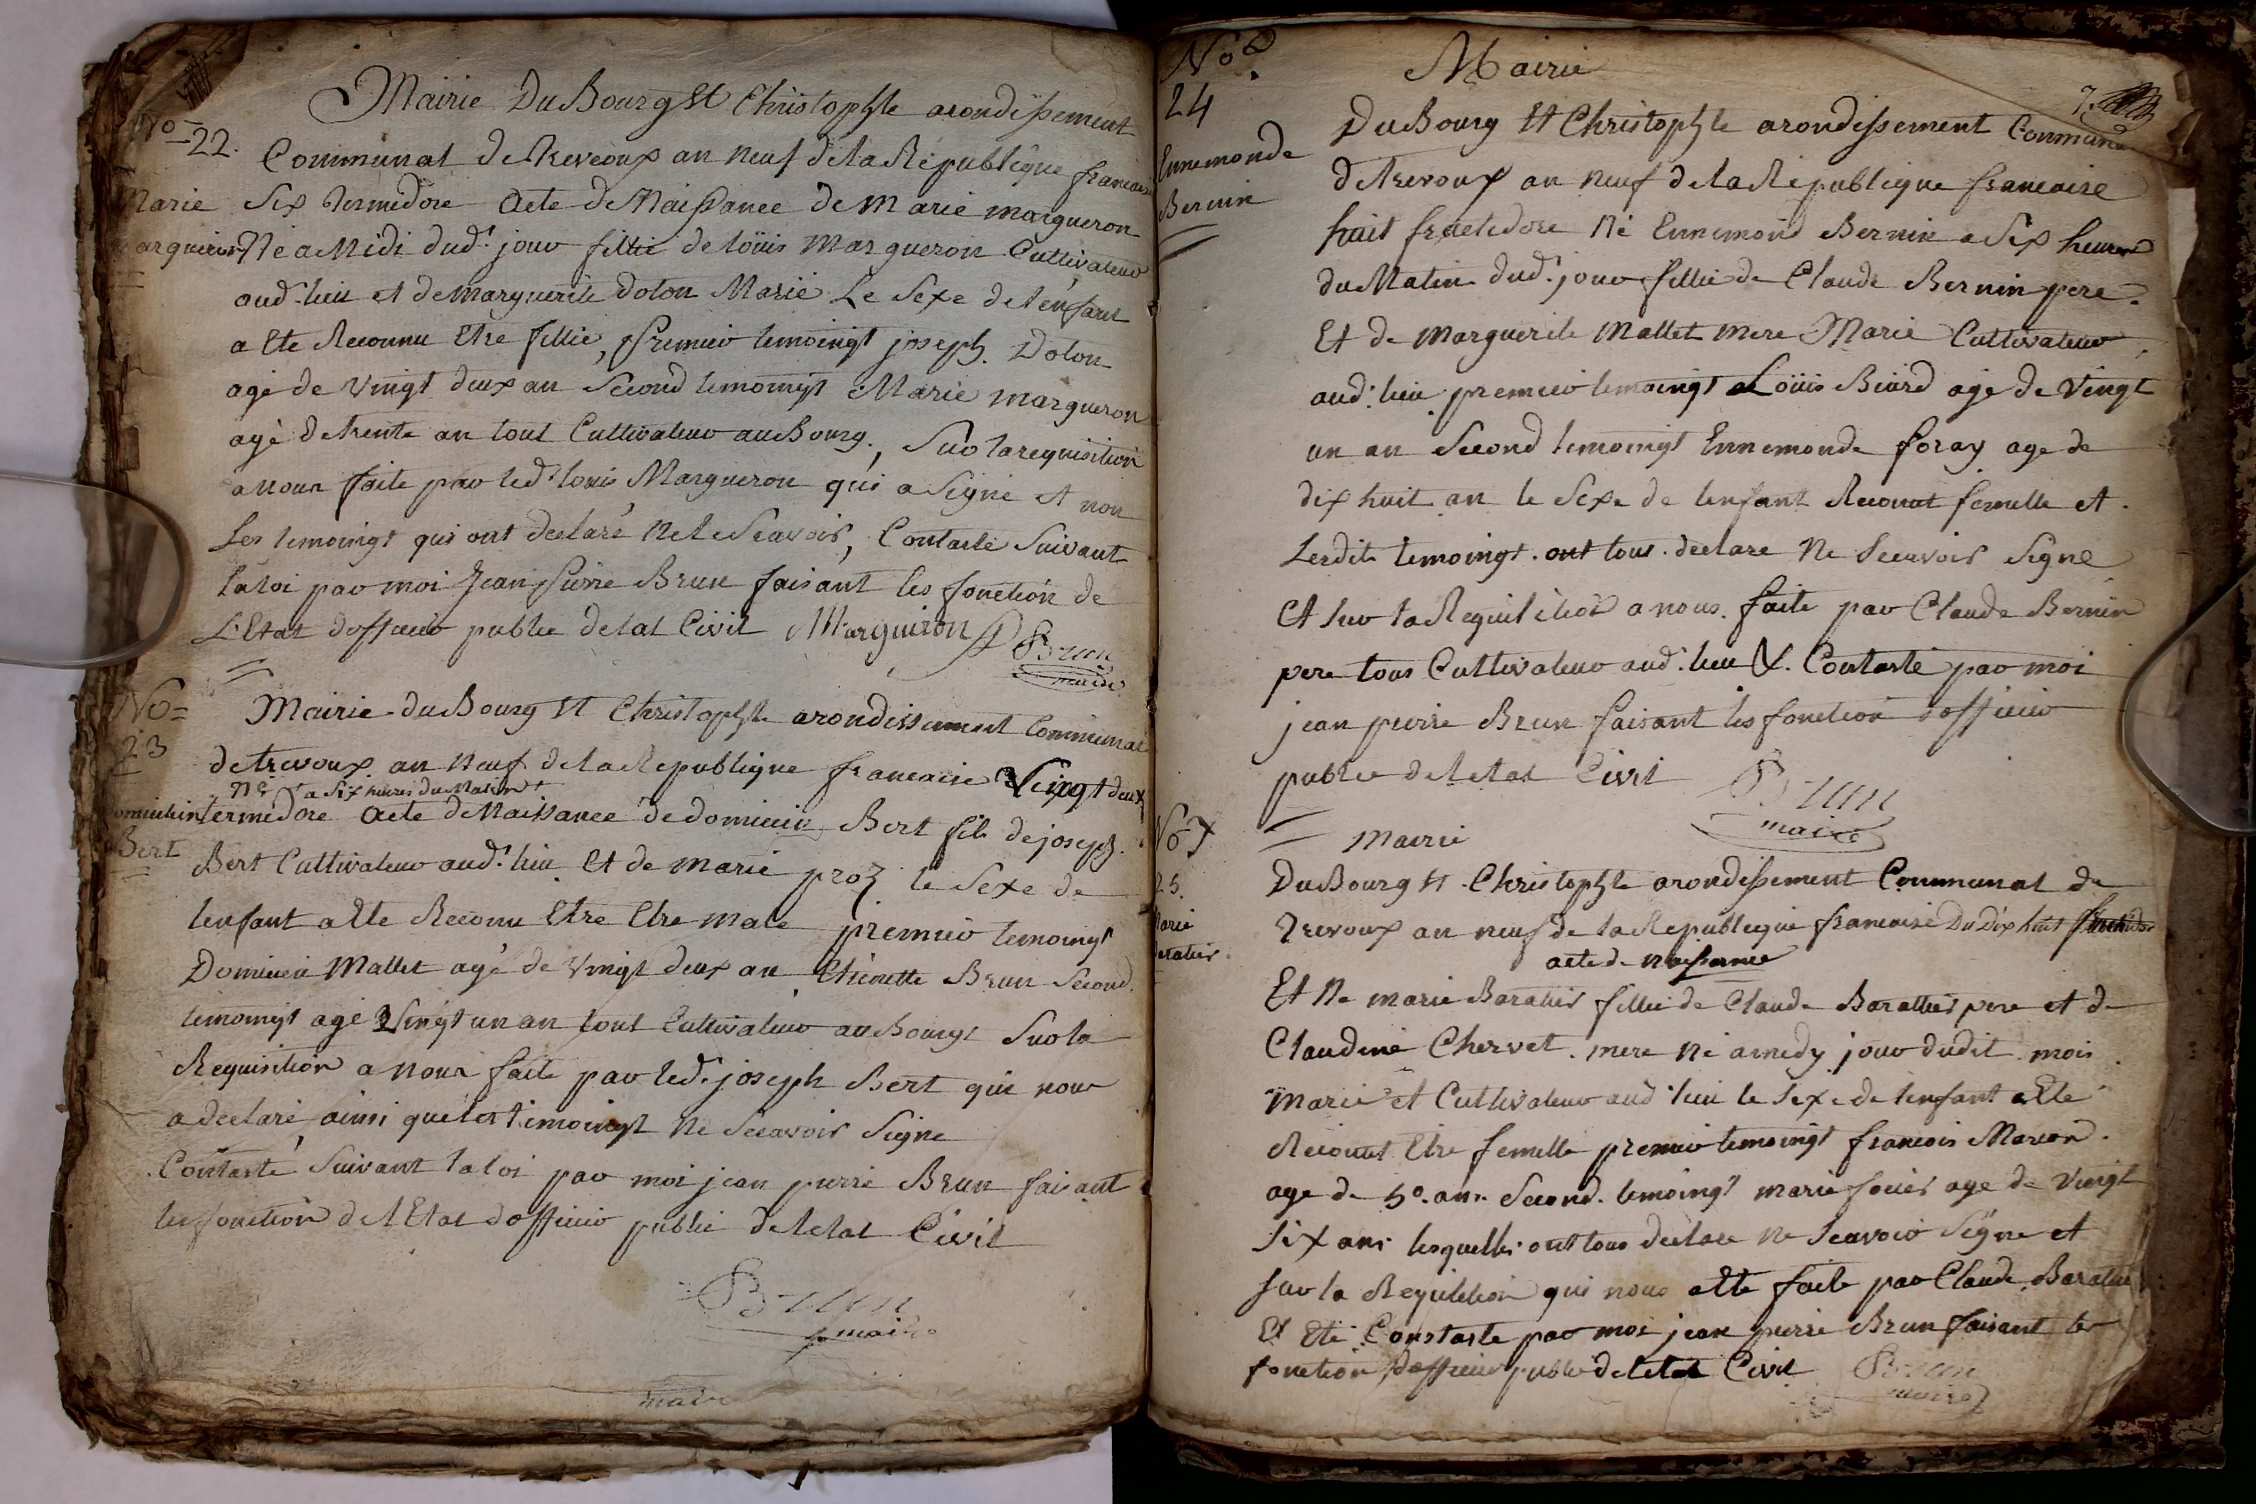 No 22.
Marie
Margueron
Mairie Du Bourg St Christophle arondissement
Communal de Treveoux an neuf de la Republique francaise
Six termidore Acte de Naissance de Marie margueron
Né a Midi dud. jour fillie de loüis Margueron Cultivateur
aud. lieu et de marguerite dolon Marié Le Sexe de lenfant
a Ete Reconnu Etre fillie, Premier temoingt joseph Dolon
agé de Vingt deux an Second temoingt Marie margueron
agé de trente an tout Cultivateur au Bourg, Sur la requisition
a nous faite par led. louis Margueron qui a Signé et non
Les temoingt qui ont declaré ne le Scavoir, Contasté Suivant
la loi par moi Jean Pierre Brun faisant les fonction de
L'Etat dofficier public de lat Civil Marguiron JP Brun
maire
No 23
Domicien
Bert
Mairie du Bourg St Christophle arondissement Communal
de trevoux an neuf de la Republique francaise Vingt deux
né a Six heures du Matin
termedore Acte de Naissance de domicien Bert fils de joseph
Bert Cultivateur aud. lieu Et de marie proz le Sexe de
lenfant a Ete Reconu Etre Etre male premier temoingt
Domicien Mallet agé de Vingt deux an Etienette Brun Second
temoingt agé Vingt un an tout Cultivateur au Bourgt Sur la
Requisition a nous faite par led. joseph Bert qui nous
a declaré ainsi que les temoingt ne Scavoir Signe
Contasté Suivant la loi par moi jean pierre Brun faisant
les fonction de lEtat dofficier public de letat Civil
Brun
maire
maire
No
24
Ennemonde
Bernin
Mairie
7.
Du Bourg St Christophle arondissement Communal
de trevoux an neuf de la Republique francaise
huit fructidore né Ennemond Bernin a Six heures
du Matin dud. jour fillie de Claude Bernin pere
Et de Marguerite Mallet mere Marié Cultivateur
aud. lieu premier temoingt Loüis Biard agé de Vingt
un an Second temoingt Ennemonde foray age de
dix huit an le Sexe de lenfant Reconut femelle et
Lesdits temoingt ont tous declare Ne Scavoir Signe
Et sur la Requisition a nous faite par Claude Bernin
pere tous Cultivateur aud. lieu &. Contasté par moi
jean pierre Brun faisant les fonction dofficier
public de letat Civil Brun
maire
No
25.
Marie
Baratier
Mairie
Du Bourg St Christophle arondissement Communal de
Trevoux an neuf de la Republique francaise Du Dix huit fructidor
acte de naissance
Et Ne marie Baratier fillie de Claude Barattier pere et de
Claudine Chervet mere né a medy jour dudit mois
Marié et Cultivateur aud. lieu le Sexe de lenfant a Ete
Reconut Etre femelle premier temoingt francois Marion
age de 50. ans Second temoingt marie foües age de Vingt
Six ans lesquelles ont tous declare ne Scavoir Signe et
sur la Requisition qui nous a Ete faite par Claude Baratier
Et Eté Constaste par moi jean pierre Brun faisant les
fonction dofficier public de letat Civil Brun
maire